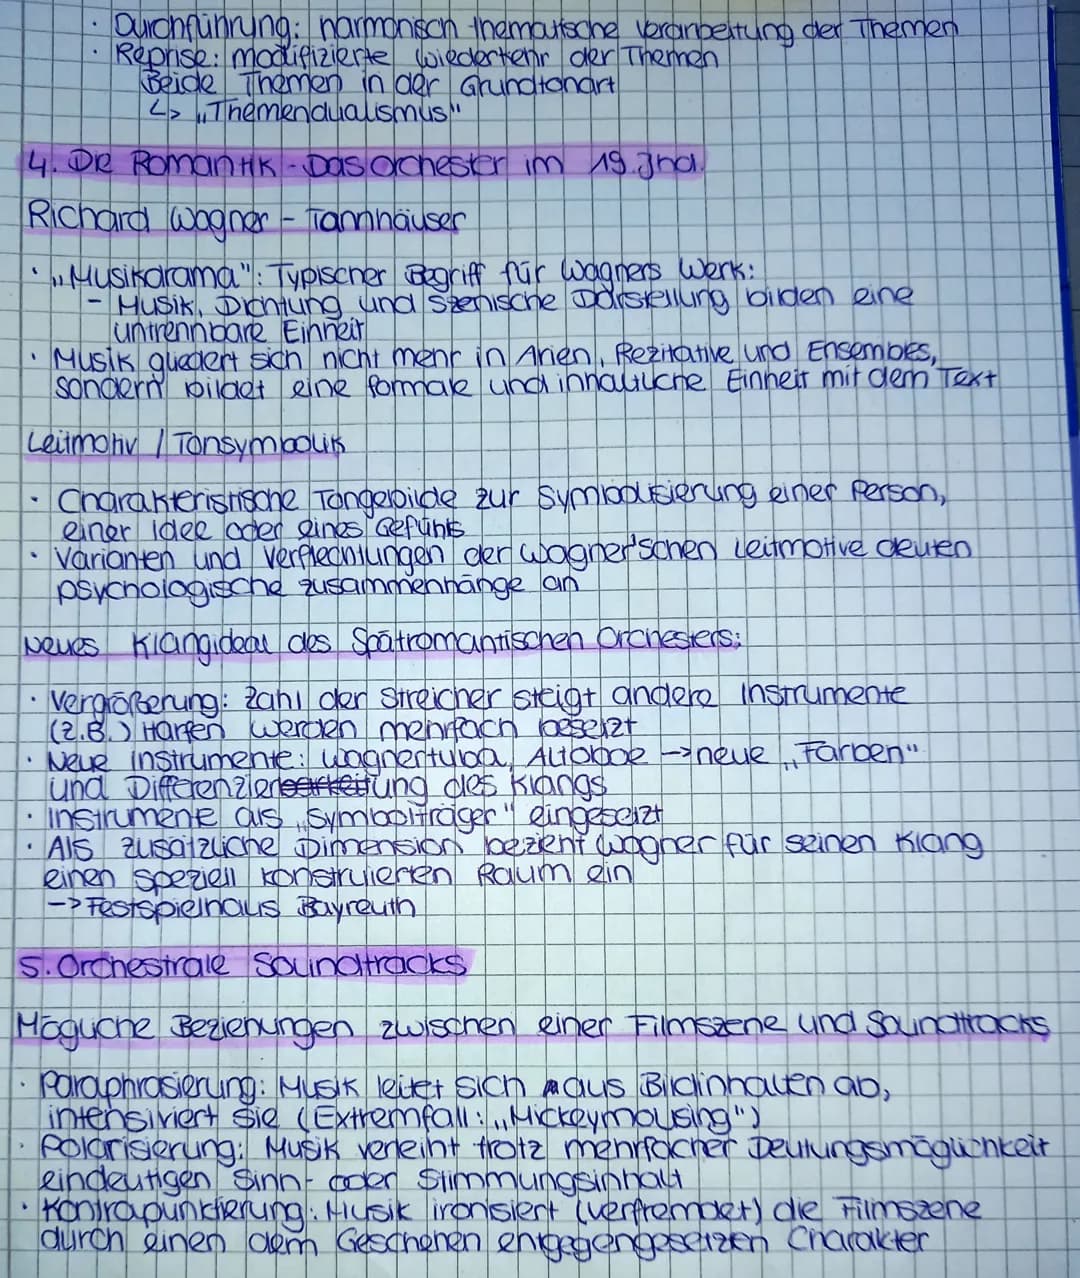 · Durchführung: harmonisch thematische Verarbeitung der Themen
· Reprise: modifizierte Wiederkehr der Themen
Beide Themen in der Grundtonart
↳ „Themendualismus"
4. Die Romantik - Das Orchester im 19. Jhd.
Richard Wagner - Tannhäuser
· „Musikdrama": Typischer Begriff für Wagners Werk:
- Musik, Dichtung und szenische Darstellung bilden eine
untrennbare Einheit
· Musik gliedert sich nicht mehr in Arien, Rezitative und Ensembles,
sondern bildet eine formale und inhaltliche Einheit mit dem Text
Leitmotiv / Tonsymbolik
· Charakteristische Tongebilde zur Symbolisierung einer Person,
einer Idee oder eines Gefühls
· Varianten und Verflechtungen der Wagner'schen Leitmotive deuten
psychologische Zusammenhänge an
Neues Klangideal des Spätromantischen Orchesters:
· Vergrößerung: Zahl der Streicher steigt andere Instrumente
(z.B.) Harfen werden mehrfach besetzt
· Neue Instrumente: Wagnertuba, Altoboe → neue „Farben"
und Differenzierung des Klangs
· Instrumente als „Symbolträger" eingesetzt
· Als zusätzliche Dimension bezieht Wagner für seinen Klang
einen speziell konstruierten Raum ein
-> Festspielhaus Bayreuth
5. Orchestrale Soundtracks
Mögliche Beziehungen zwischen einer Filmszene und Soundtracks
· Paraphrasierung: Musik leitet sich aus Bildinhalten ab,
intensiviert sie (Extremfall: „Mickeymousing")
· Polarisierung: Musik verleiht trotz mehrfacher Deutungsmöglichkeit
eindeutigen Sinn- oder Stimmungsinhalt
· Kontrapunktierung: Musik ironisiert (verfremdet) die Filmszene
durch einen dem Geschehen entgegengesetzen Charakter